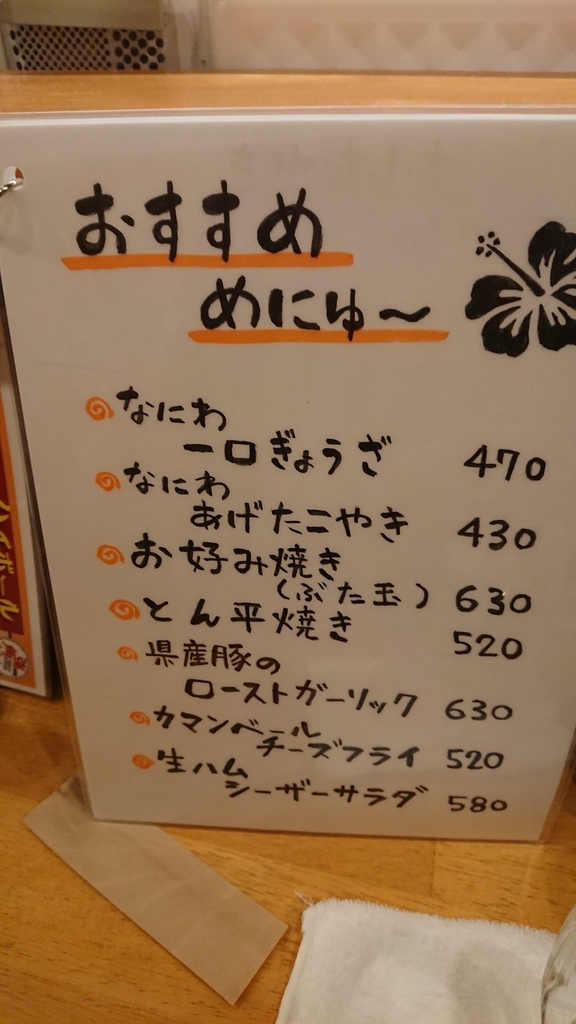 おすすめ
めにゅ～
なにわ
一口ぎょうざ 470
なにわ
あげたこやき 430
お好み焼き
(ぶた玉) 630
とん平焼き 520
県産豚の
ローストガーリック 630
カマンベール
チーズフライ 520
生ハム
シーザーサラダ 580